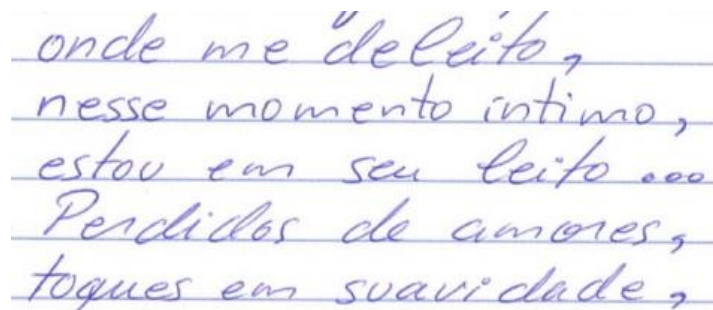 onde me deleito,
nesse momento íntimo,
estou em seu leito...
Perdidos de amores,
toques em suavidade,